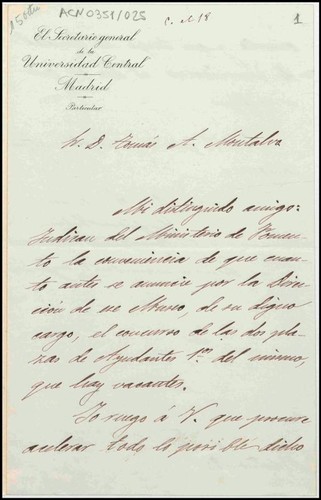 15 Oct
ACN0351/025
C. N 18
1
El Secretario general
de la
Universidad Central
Madrid
Particular
S. D. Tomás A. Montalvo
Mi distinguido amigo:
Indican del Ministerio de Fomen-
to la conveniencia de que cuan-
to antes se anuncie por la Direc-
ción de ese Museo, de su digno
cargo, el concurso de las dos pla-
zas de Ayudantes 1os del mismo,
que hay vacantes.
Yo ruego á V. que procure
acelerar todo lo posible dicho